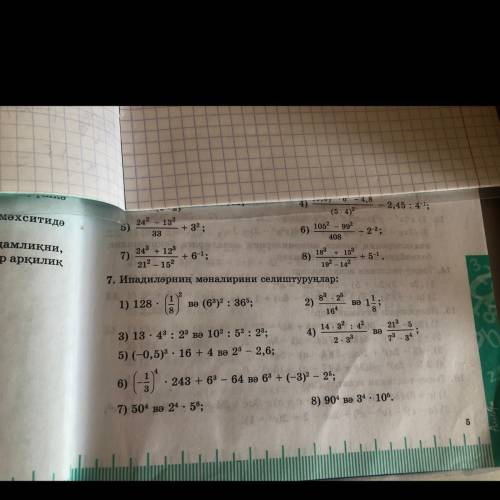 мәхситидә
дамлиқни,
р арқилиқ
4) − 2,45 : 4⁻¹;
(5 · 4)²
5) (24² − 13²)/33 + 3²;
6) (105² − 99²)/408 − 2⁻²;
7) (24³ + 12³)/(21² − 15²) + 6⁻¹;
8) (18³ + 15³)/(19² − 14²) + 5⁻¹.
7. Ипадиләрниң мәналирини селиштуруңлар:
1) 128 · (1/8)² вә (6³)² : 36⁵;
2) (8³ · 2⁵)/16⁴ вә 1 1/8;
3) 13 · 4³ : 2⁹ вә 10² : 5² : 2³;
4) (14 · 3² : 4²)/(2 · 3³) вә (21³ · 5)/(7³ · 3⁴);
5) (−0,5)³ · 16 + 4 вә 2³ − 2,6;
6) (−1/3)⁴ · 243 + 6³ − 64 вә 6³ + (−3)² − 2⁵;
7) 50⁴ вә 2⁴ · 5⁸;
8) 90⁴ вә 3⁴ · 10⁶.
5